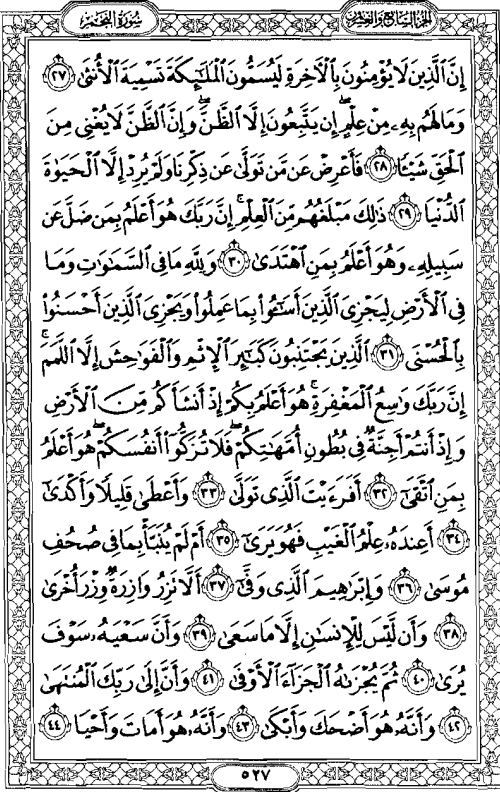 الجزء السابع والعشرون
سورة النجم
إِنَّ ٱلَّذِينَ لَا يُؤْمِنُونَ بِٱلْأَخِرَةِ لَيُسَمُّونَ ٱلْمَلَٰٓئِكَةَ تَسْمِيَةَ ٱلْأُنثَىٰ ٢٧
وَمَا لَهُم بِهِۦ مِنْ عِلْمٍ إِن يَتَّبِعُونَ إِلَّا ٱلظَّنَّ وَإِنَّ ٱلظَّنَّ لَا يُغْنِى مِنَ
ٱلْحَقِّ شَيْـًٔا ٢٨ فَأَعْرِضْ عَن مَّن تَوَلَّىٰ عَن ذِكْرِنَا وَلَمْ يُرِدْ إِلَّا ٱلْحَيَوٰةَ
ٱلدُّنْيَا ٢٩ ذَٰلِكَ مَبْلَغُهُم مِّنَ ٱلْعِلْمِ إِنَّ رَبَّكَ هُوَ أَعْلَمُ بِمَن ضَلَّ عَن
سَبِيلِهِۦ وَهُوَ أَعْلَمُ بِمَنِ ٱهْتَدَىٰ ٣٠ وَلِلَّهِ مَا فِى ٱلسَّمَٰوَٰتِ وَمَا
فِى ٱلْأَرْضِ لِيَجْزِىَ ٱلَّذِينَ أَسَٰٓـُٔوا۟ بِمَا عَمِلُوا۟ وَيَجْزِىَ ٱلَّذِينَ أَحْسَنُوا۟
بِٱلْحُسْنَى ٣١ ٱلَّذِينَ يَجْتَنِبُونَ كَبَٰٓئِرَ ٱلْإِثْمِ وَٱلْفَوَٰحِشَ إِلَّا ٱللَّمَمَ
إِنَّ رَبَّكَ وَٰسِعُ ٱلْمَغْفِرَةِ هُوَ أَعْلَمُ بِكُمْ إِذْ أَنشَأَكُم مِّنَ ٱلْأَرْضِ
وَإِذْ أَنتُمْ أَجِنَّةٌ فِى بُطُونِ أُمَّهَٰتِكُمْ فَلَا تُزَكُّوٓا۟ أَنفُسَكُمْ هُوَ أَعْلَمُ
بِمَنِ ٱتَّقَىٰٓ ٣٢ أَفَرَءَيْتَ ٱلَّذِى تَوَلَّىٰ ٣٣ وَأَعْطَىٰ قَلِيلًا وَأَكْدَىٰٓ
٣٤ أَعِندَهُۥ عِلْمُ ٱلْغَيْبِ فَهُوَ يَرَىٰٓ ٣٥ أَمْ لَمْ يُنَبَّأْ بِمَا فِى صُحُفِ
مُوسَىٰ ٣٦ وَإِبْرَٰهِيمَ ٱلَّذِى وَفَّىٰٓ ٣٧ أَلَّا تَزِرُ وَازِرَةٌ وِزْرَ أُخْرَىٰ
٣٨ وَأَن لَّيْسَ لِلْإِنسَٰنِ إِلَّا مَا سَعَىٰ ٣٩ وَأَنَّ سَعْيَهُۥ سَوْفَ
يُرَىٰ ٤٠ ثُمَّ يُجْزَىٰهُ ٱلْجَزَآءَ ٱلْأَوْفَىٰ ٤١ وَأَنَّ إِلَىٰ رَبِّكَ ٱلْمُنتَهَىٰ
٤٢ وَأَنَّهُۥ هُوَ أَضْحَكَ وَأَبْكَىٰ ٤٣ وَأَنَّهُۥ هُوَ أَمَاتَ وَأَحْيَا ٤٤
٥٢٧